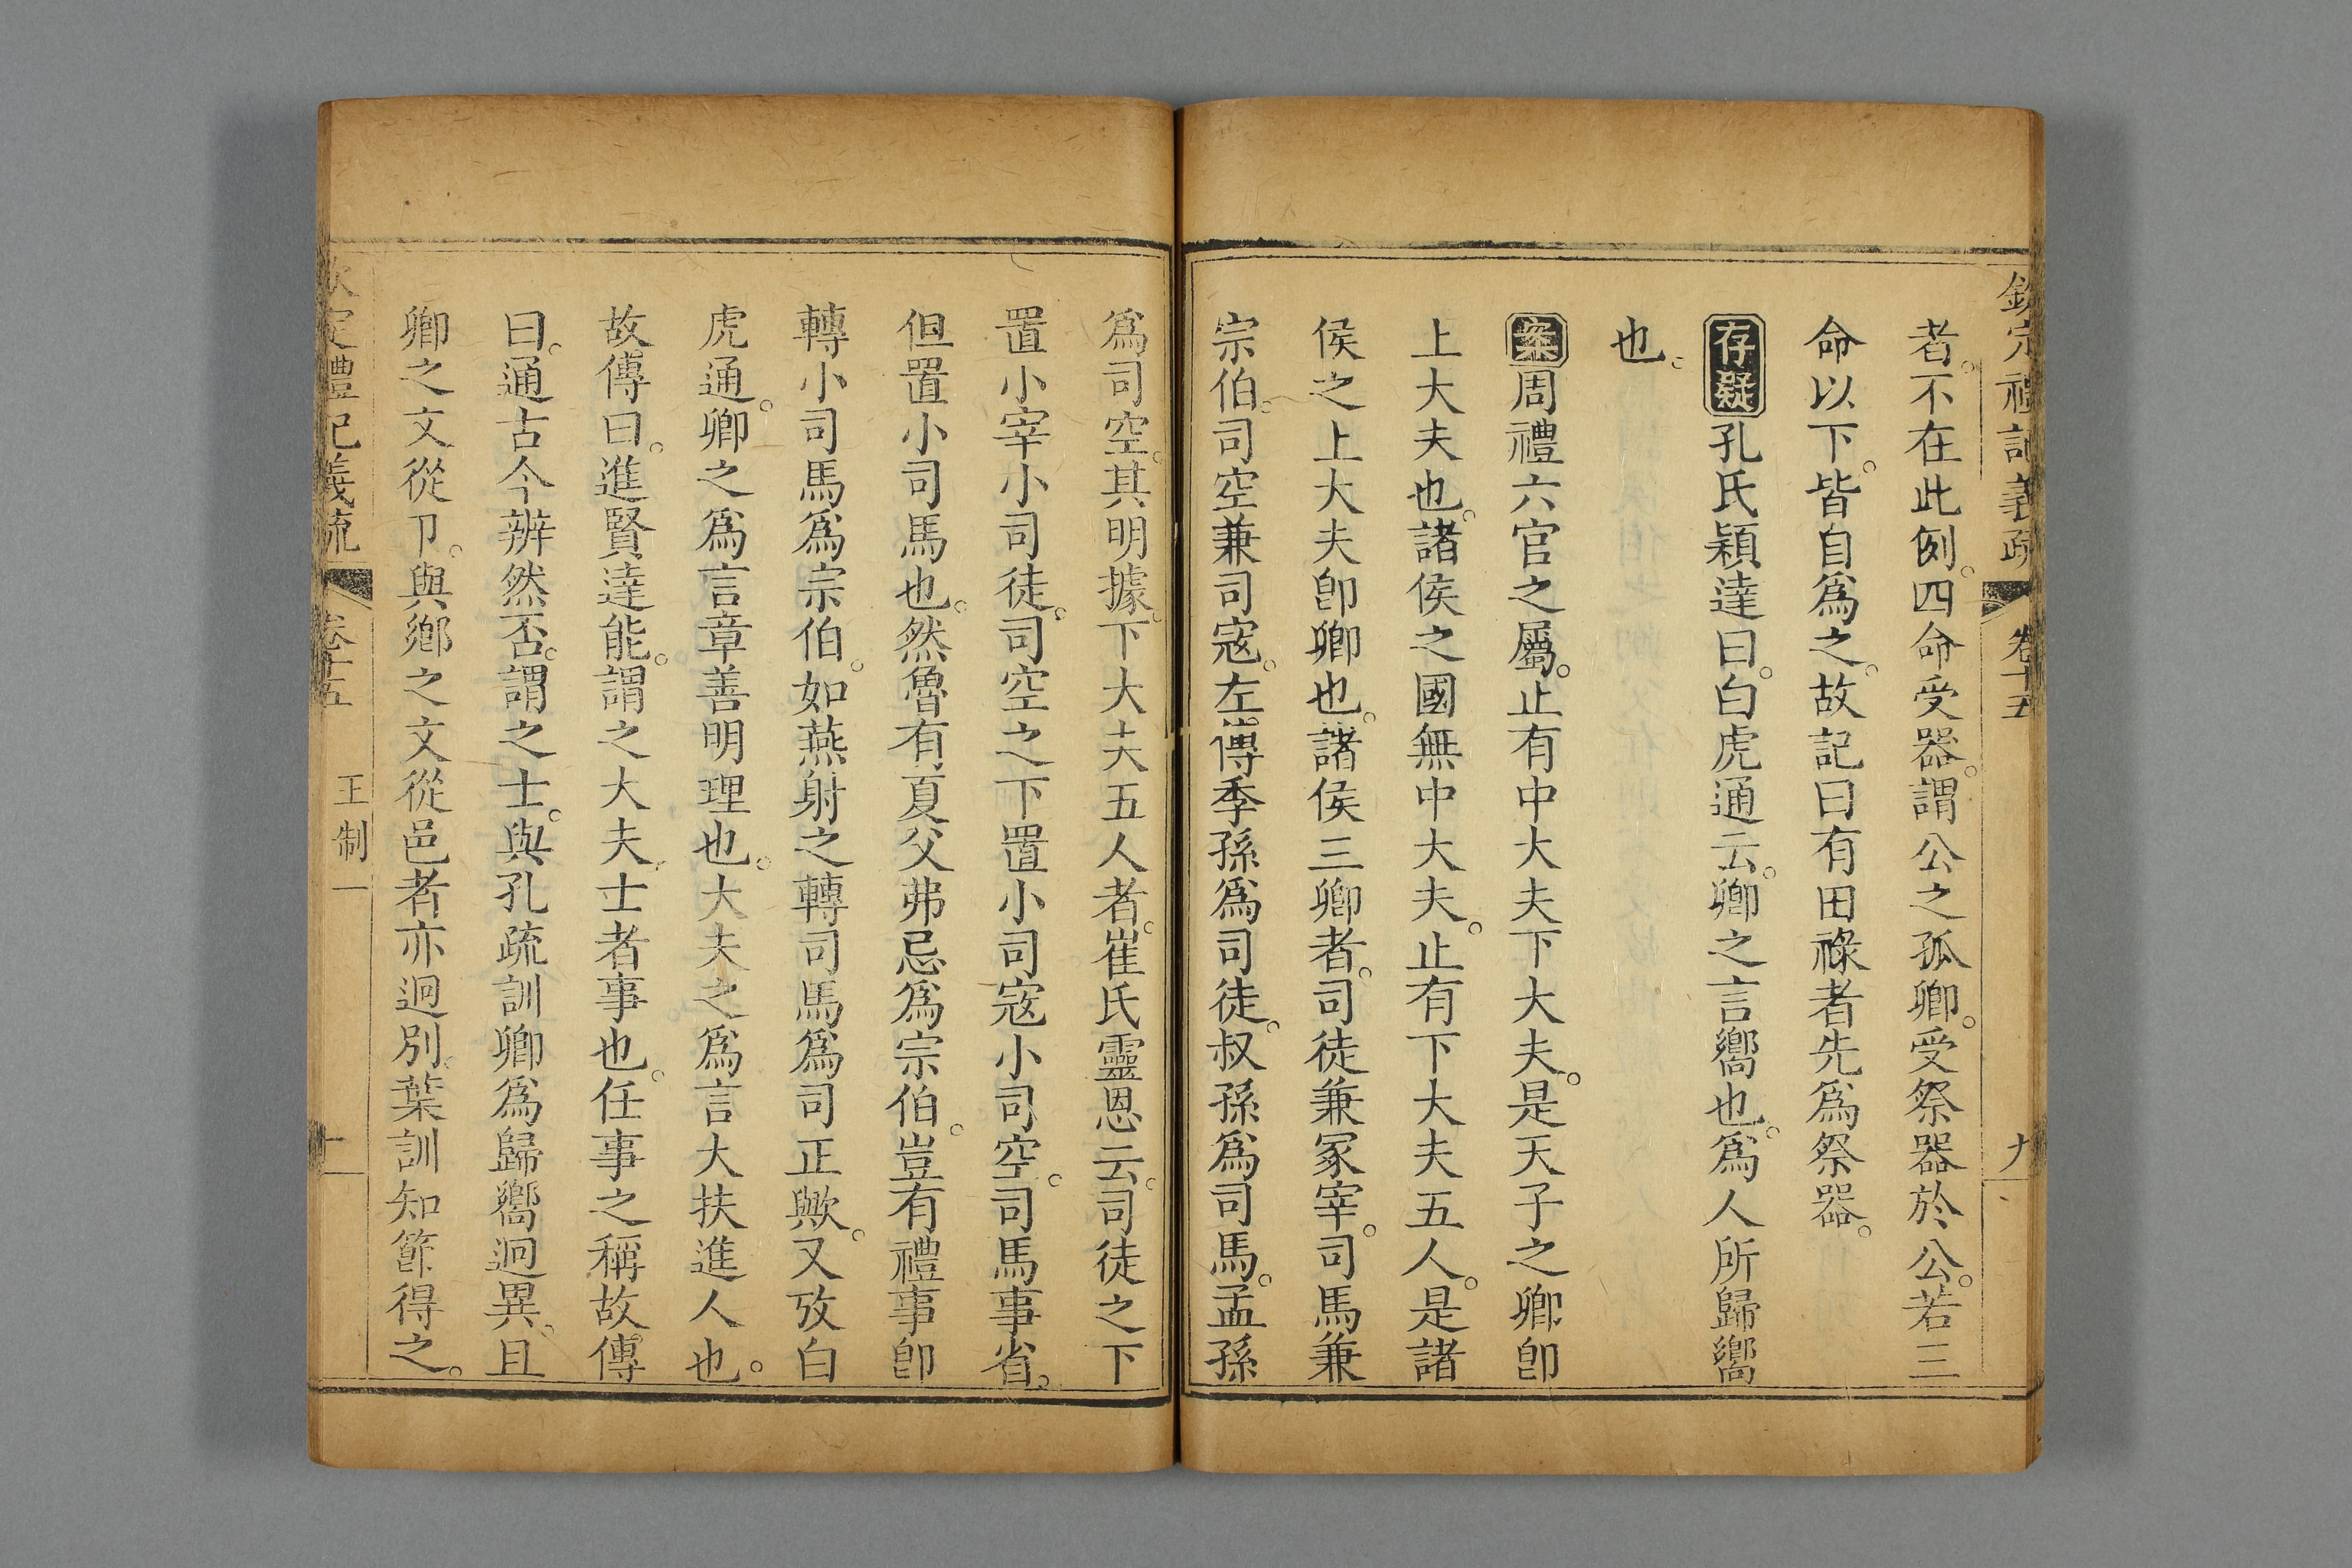 欽定禮記義疏 卷十五 九
者。不在此例。四命受器。謂公之孤卿。受祭器於公。若三
命以下。皆自爲之。故記曰有田祿者先爲祭器。
存疑孔氏穎達曰。白虎通云。卿之言嚮也。爲人所歸嚮
也。
案周禮六官之屬。止有中大夫下大夫。是天子之卿卽
上大夫也。諸侯之國無中大夫。止有下大夫五人。是諸
侯之上大夫卽卿也。諸侯三卿者。司徒兼冢宰。司馬兼
宗伯。司空兼司寇。左傳季孫爲司徒。叔孫爲司馬。孟孫
爲司空。其明據。下大夫五人者。崔氏靈恩云。司徒之下
置小宰小司徒。司空之下置小司寇小司空。司馬事省。
但置小司馬也。然魯有夏父弗忌爲宗伯。豈有禮事卽
轉小司馬爲宗伯。如燕射之轉司馬爲司正歟。又攷白
虎通。卿之爲言章善明理也。大夫之爲言大扶進人也。
故傳曰。進賢達能。謂之大夫。士者事也。任事之稱故傳
曰。通古今辨然否。謂之士。與孔疏訓卿爲歸嚮迥異。且
卿之文從卩。與鄉之文從邑者亦迥別。葉訓知節得之。
欽定禮記義疏 卷十五 王制一